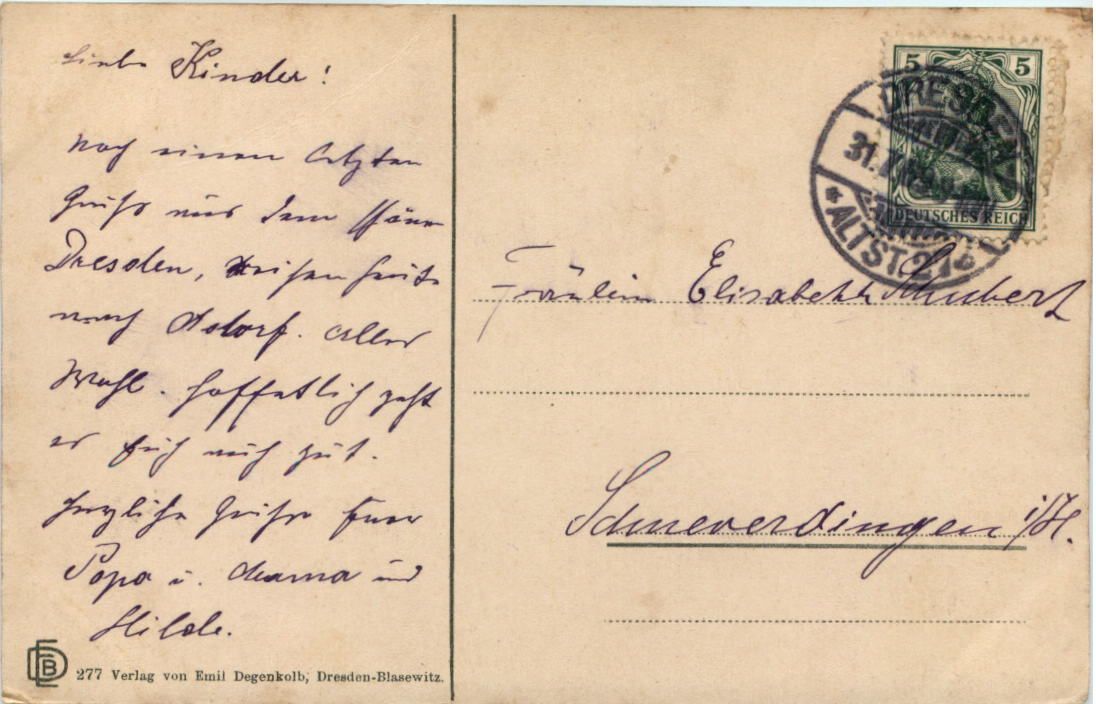 Liebe Kinder!
Noch einen letzten
Gruß aus dem schönen
Dresden, reisen heute
nach
Wohl. Hoffentlich geht
es Euch auch gut.
Herzliche Grüße Euer
Papa u. Mama und
Hilde.
277 Verlag von Emil Degenkolb, Dresden-Blasewitz.
5 5
DEUTSCHES REICH
DRESDEN
31.
* ALTST. 21
Fräulein Elisabeth Schubert
Schneverdingen i/H.